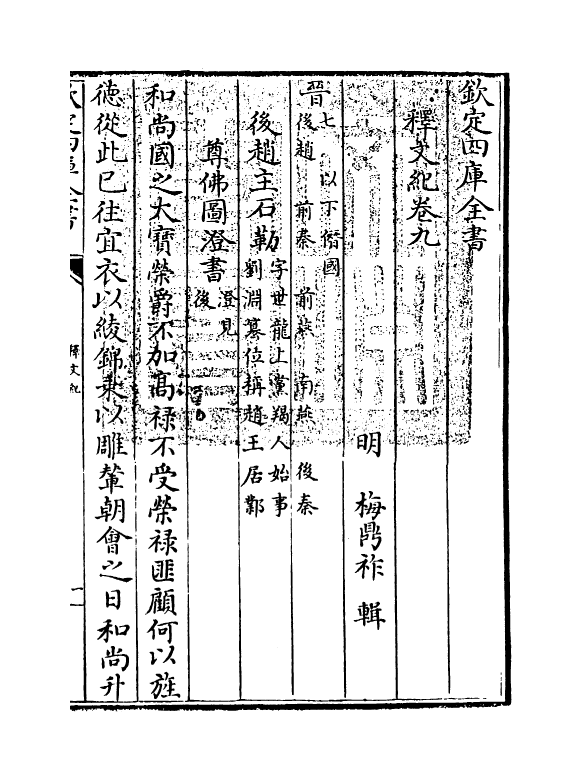 欽定四庫全書
釋文紀卷九
明 梅鼎祚 輯
晉七 以下僭國
後趙 前秦 前燕 南燕 後秦
後趙主石勒 字世龍上黨羯人始事
劉淵篡位稱趙王居鄴
尊佛圖澄書 澄見
後
和尚國之大寶榮爵不加髙禄不受榮禄匪顧何以旌
徳從此已往宜衣以綾錦乗以雕輦朝會之日和尚升
欽定四庫全書
釋文紀
一